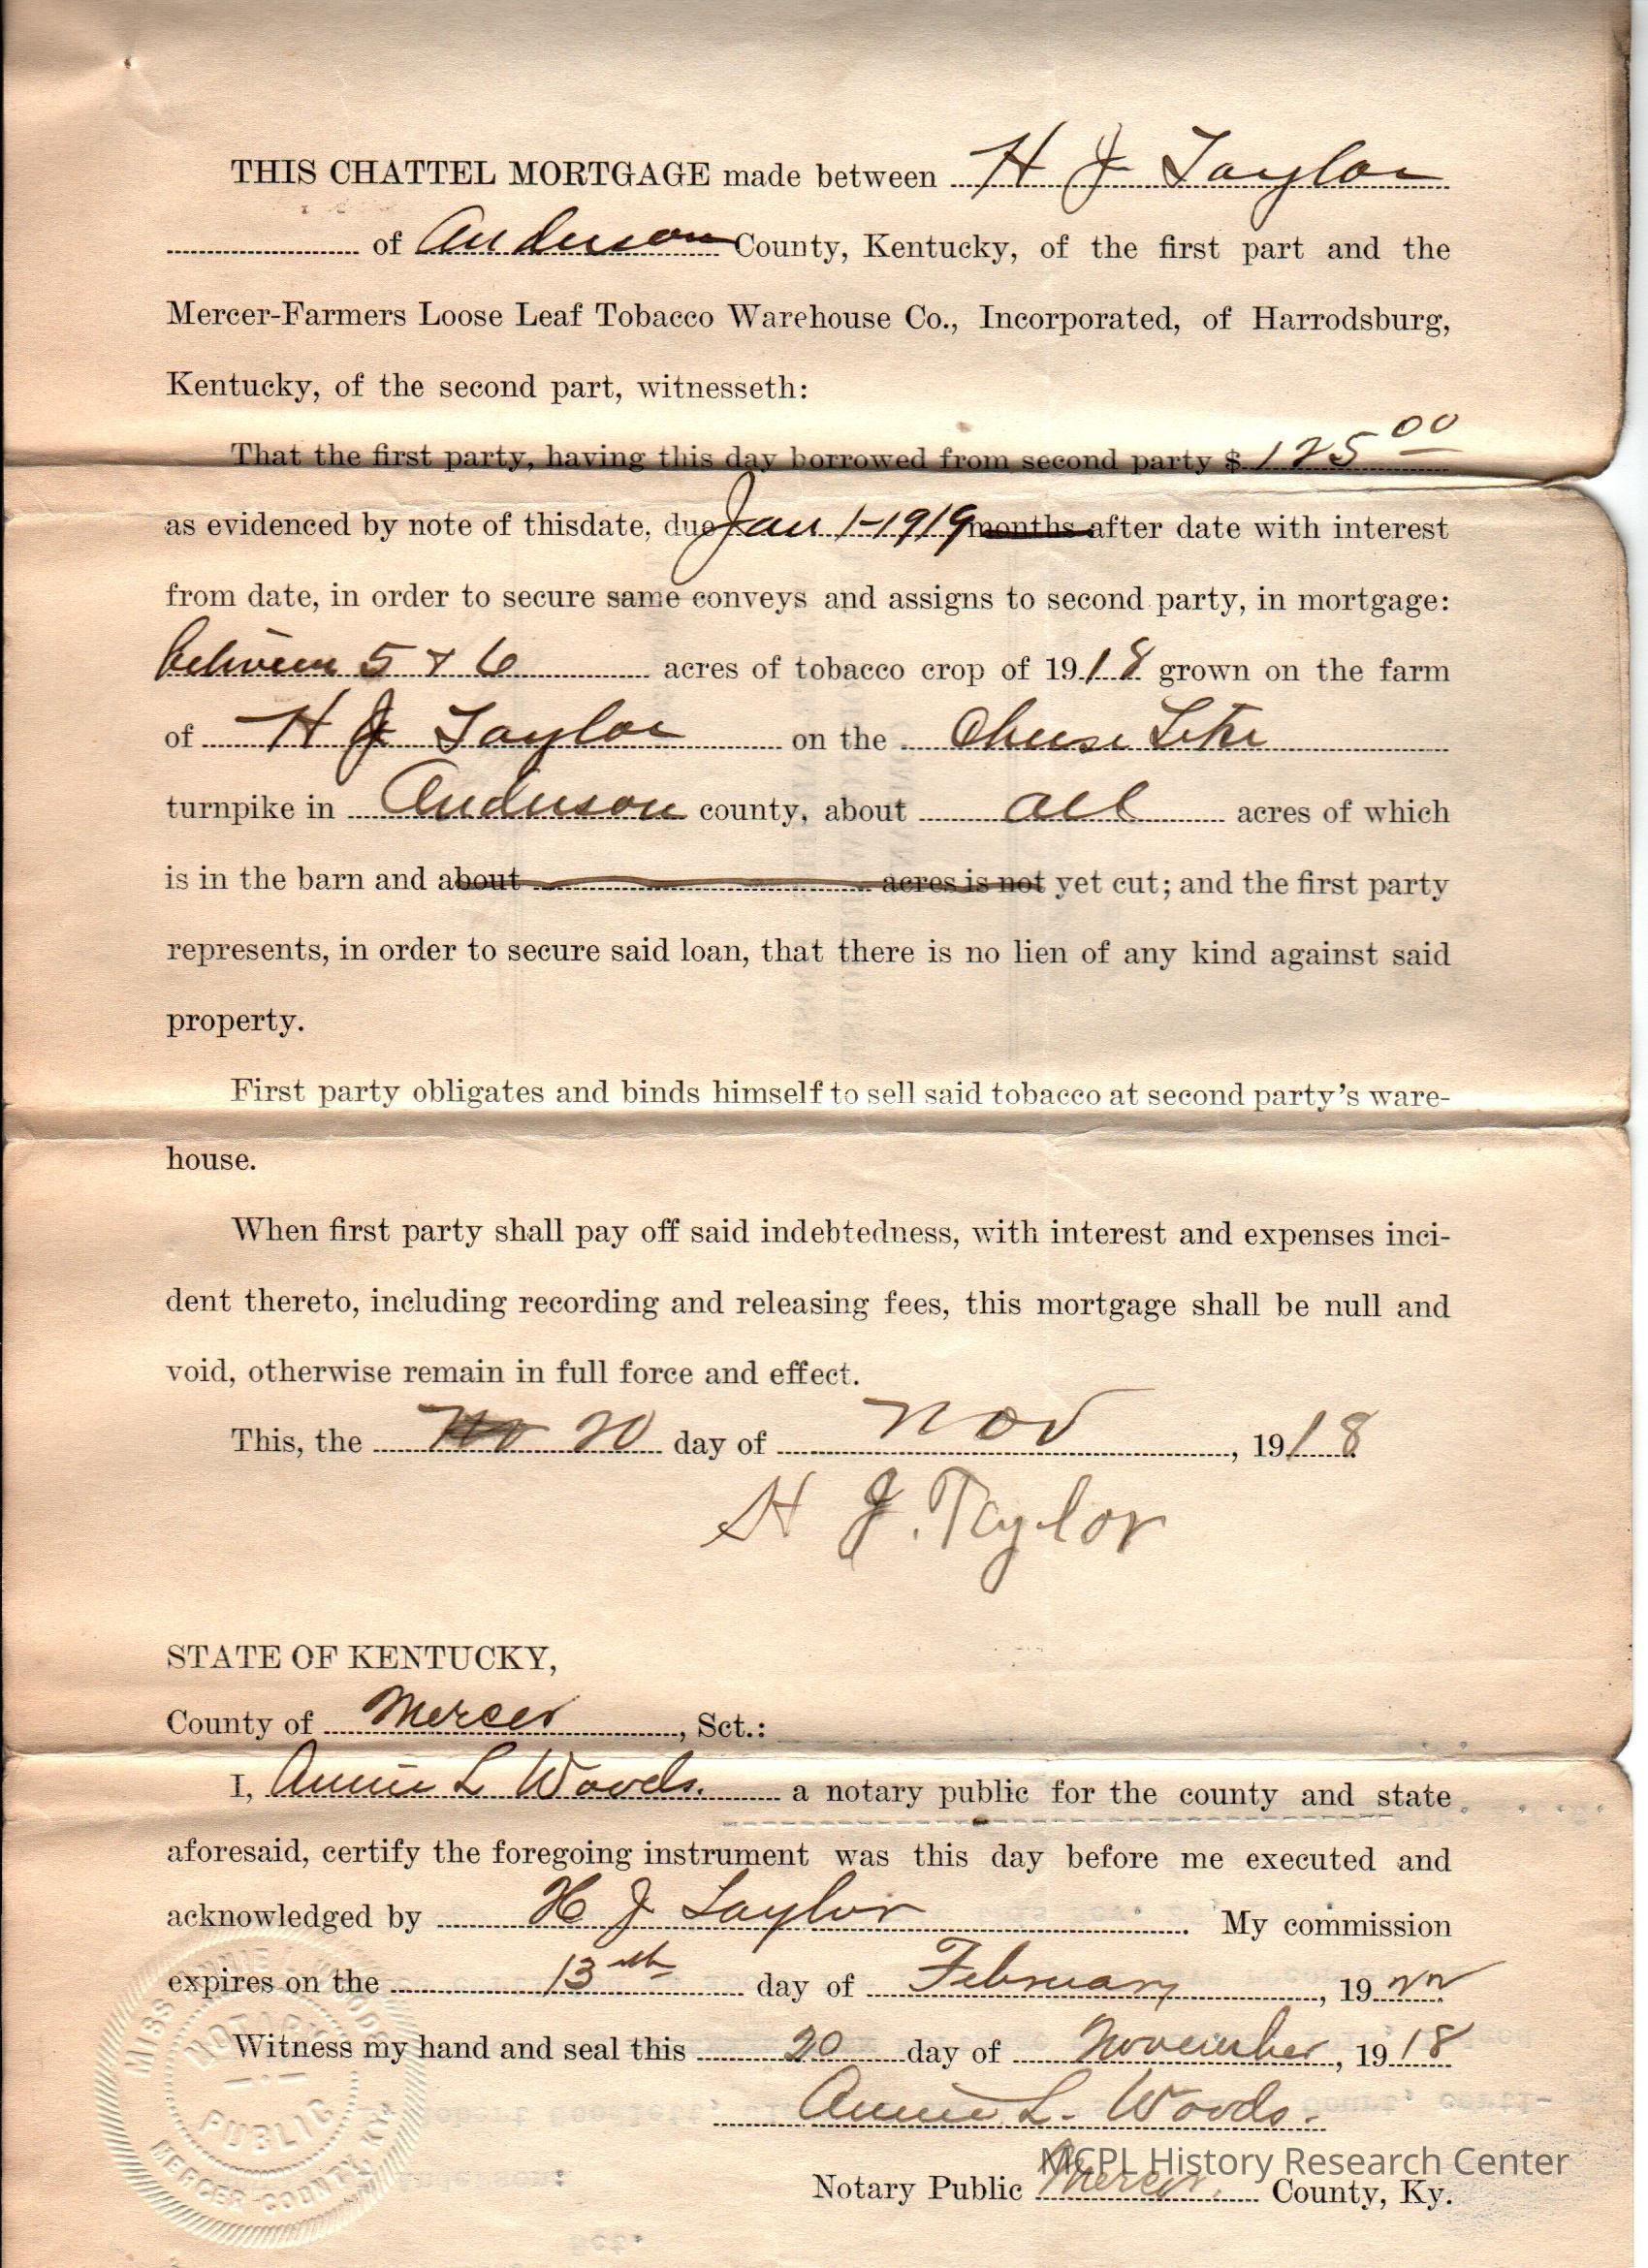 THIS CHATTEL MORTGAGE made between H J Taylor
of Anderson County, Kentucky, of the first part and the
Mercer-Farmers Loose Leaf Tobacco Warehouse Co., Incorporated, of Harrodsburg,
Kentucky, of the second part, witnesseth:
That the first party, having this day borrowed from second party $ 125 00
as evidenced by note of thisdate, due Jan 1-1919 months after date with interest
from date, in order to secure same conveys and assigns to second party, in mortgage:
between 5 & 6 acres of tobacco crop of 1918 grown on the farm
of H J Taylor on the
turnpike in Anderson county, about all acres of which
is in the barn and about acres is not yet cut; and the first party
represents, in order to secure said loan, that there is no lien of any kind against said
property.
First party obligates and binds himself to sell said tobacco at second party's ware-
house.
When first party shall pay off said indebtedness, with interest and expenses inci-
dent thereto, including recording and releasing fees, this mortgage shall be null and
void, otherwise remain in full force and effect.
This, the 20 day of Nov, 1918
H J. Taylor
STATE OF KENTUCKY,
County of Mercer, Sct.:
I, Annie L Woods. a notary public for the county and state
aforesaid, certify the foregoing instrument was this day before me executed and
acknowledged by H J Taylor. My commission
expires on the 13th day of February, 1922
Witness my hand and seal this 20 day of November, 1918
Annie L. Woods.
Notary Public Mercer. County, Ky.
MCPL History Research Center
MISS ANNIE L. WOODS
NOTARY
PUBLIC
MERCER COUNTY, KY.